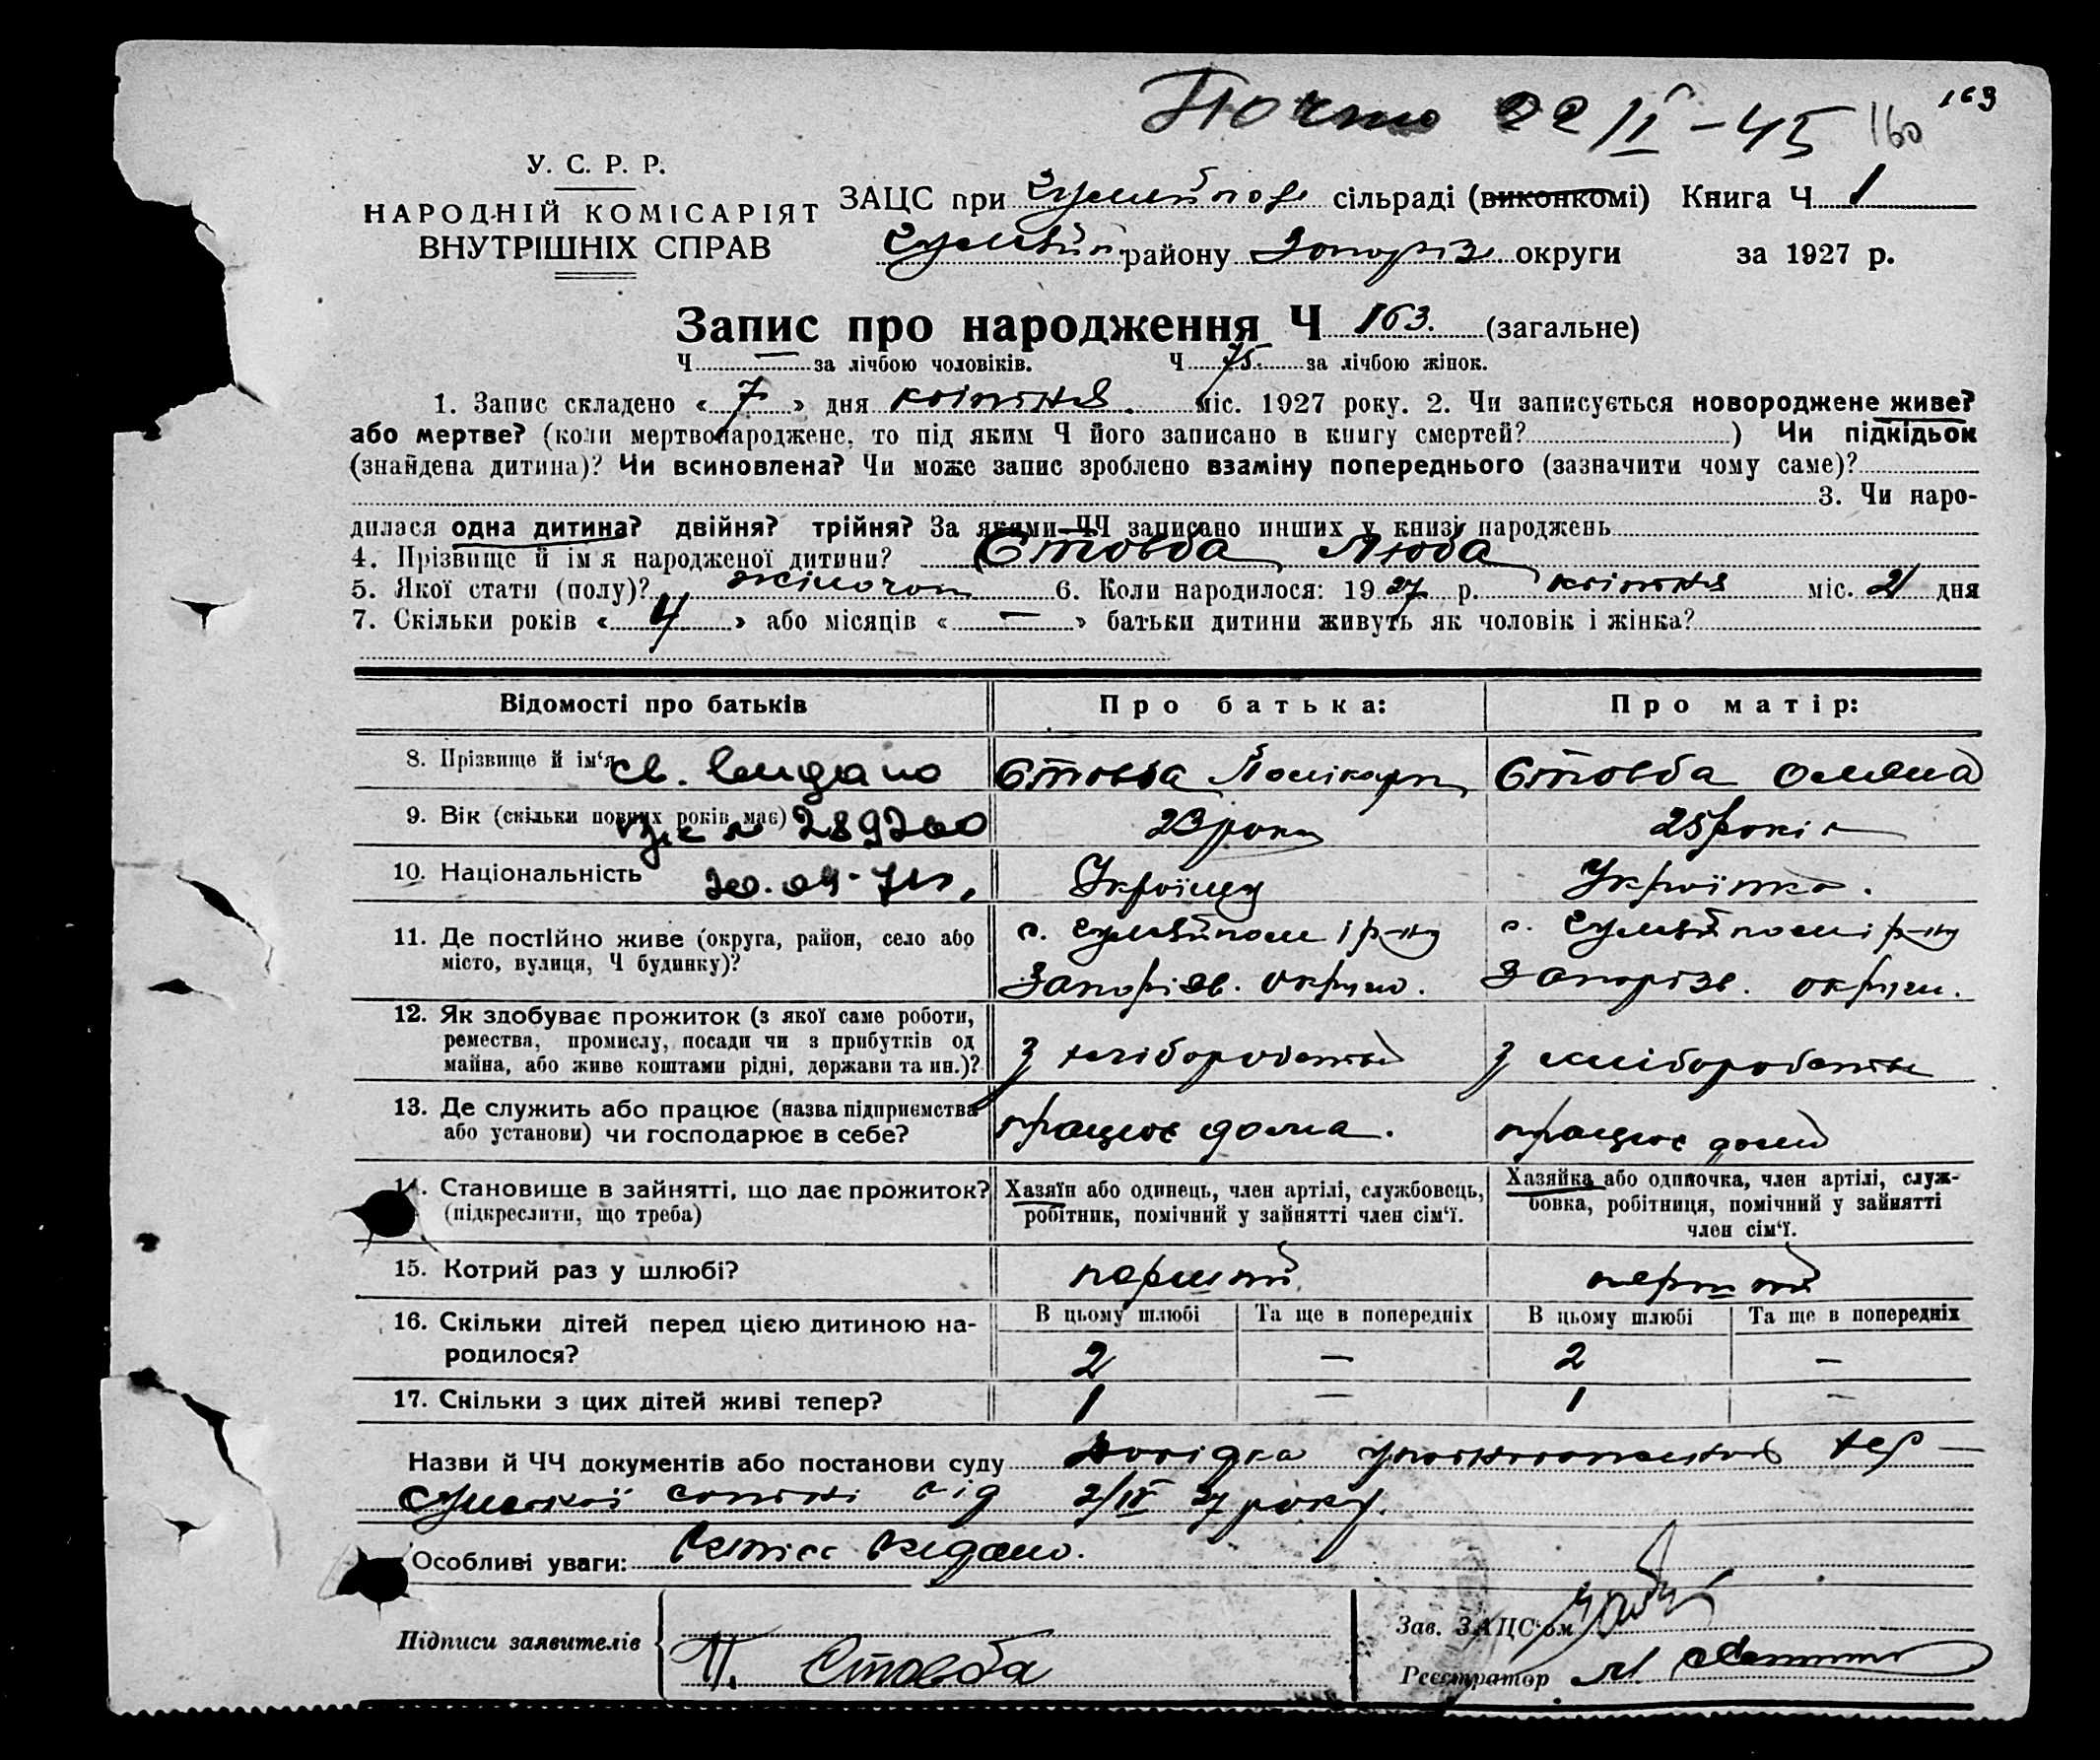 22/II-45 160 163
У. С. Р. Р.
НАРОДНІЙ КОМІСАРІЯТ
ВНУТРІШНІХ СПРАВ
ЗАЦС при Гуляйпов сільраді (виконкомі) Книга Ч 1
Гуляйп району Запоріз. округи за 1927 р.
Запис про народження Ч 163. (загальне)
Ч — за лічбою чоловіків. Ч 75. за лічбою жінок.
1. Запис складено « 7 » дня квітня міс. 1927 року. 2. Чи записується новороджене живе?
або мертве? (коли мертвонароджене, то під яким Ч його записано в книгу смертей? ) Чи підкідьок
(знайдена дитина)? Чи всиновлена? Чи може запис зроблено взаміну попереднього (зазначити чому саме)?
3. Чи наро-
дилася одна дитина? двійня? трійня? За якими ЧЧ записано инших у книзі народжень
4. Прізвище й ім'я народженої дитини? Стовба Люба
5. Якої стати (полу)? жіночот 6. Коли народилося: 1927 р. квітня міс. 2 дня
7. Скільки років « 4 » або місяців « — » батьки дитини живуть як чоловік і жінка?
Відомості про батьків Про батька: Про матір:
8. Прізвище й ім'я св. видано Стовба Полікарп Стовба Оляна
9. Вік (скільки повних років має) № 289200 23 роки 25 років
10. Національність 20.04.71г. Українц Українка.
11. Де постійно живе (округа, район, село або
місто, вулиця, Ч будинку)?
с. Гуляйполе і р-ну
Запорізв. округи.
с. Гуляйполе і р-ну
Запорізв. округи.
12. Як здобуває прожиток (з якої саме роботи,
ремества, промислу, посади чи з прибутків од
майна, або живе коштами рідні, держави та ин.)?
з хліборобства з хліборобства
13. Де служить або працює (назва підприємства
або установи) чи господарює в себе?
працює дома. працює дома
14. Становище в зайнятті, що дає прожиток?
(підкреслити, що треба)
Хазяїн або одинець, член артілі, службовець,
робітник, помічний у зайнятті член сім'ї.
Хазяйка або одиночка, член артілі, служ-
бовка, робітниця, помічний у зайнятті
член сім'ї.
15. Котрий раз у шлюбі? перший перший
16. Скільки дітей перед цією дитиною на-
родилося?
В цьому шлюбі Та ще в попередніх В цьому шлюбі Та ще в попередніх
2 — 2 —
17. Скільки з цих дітей живі тепер? 1 — 1 —
Назви й ЧЧ документів або постанови суду Довідка уповноваженов
сотні від 2/IV 27 року.
Особливі уваги: видано.
Підписи заявителів
П. Стовба
Зав. ЗАЦС'ом
Реєстратор М.